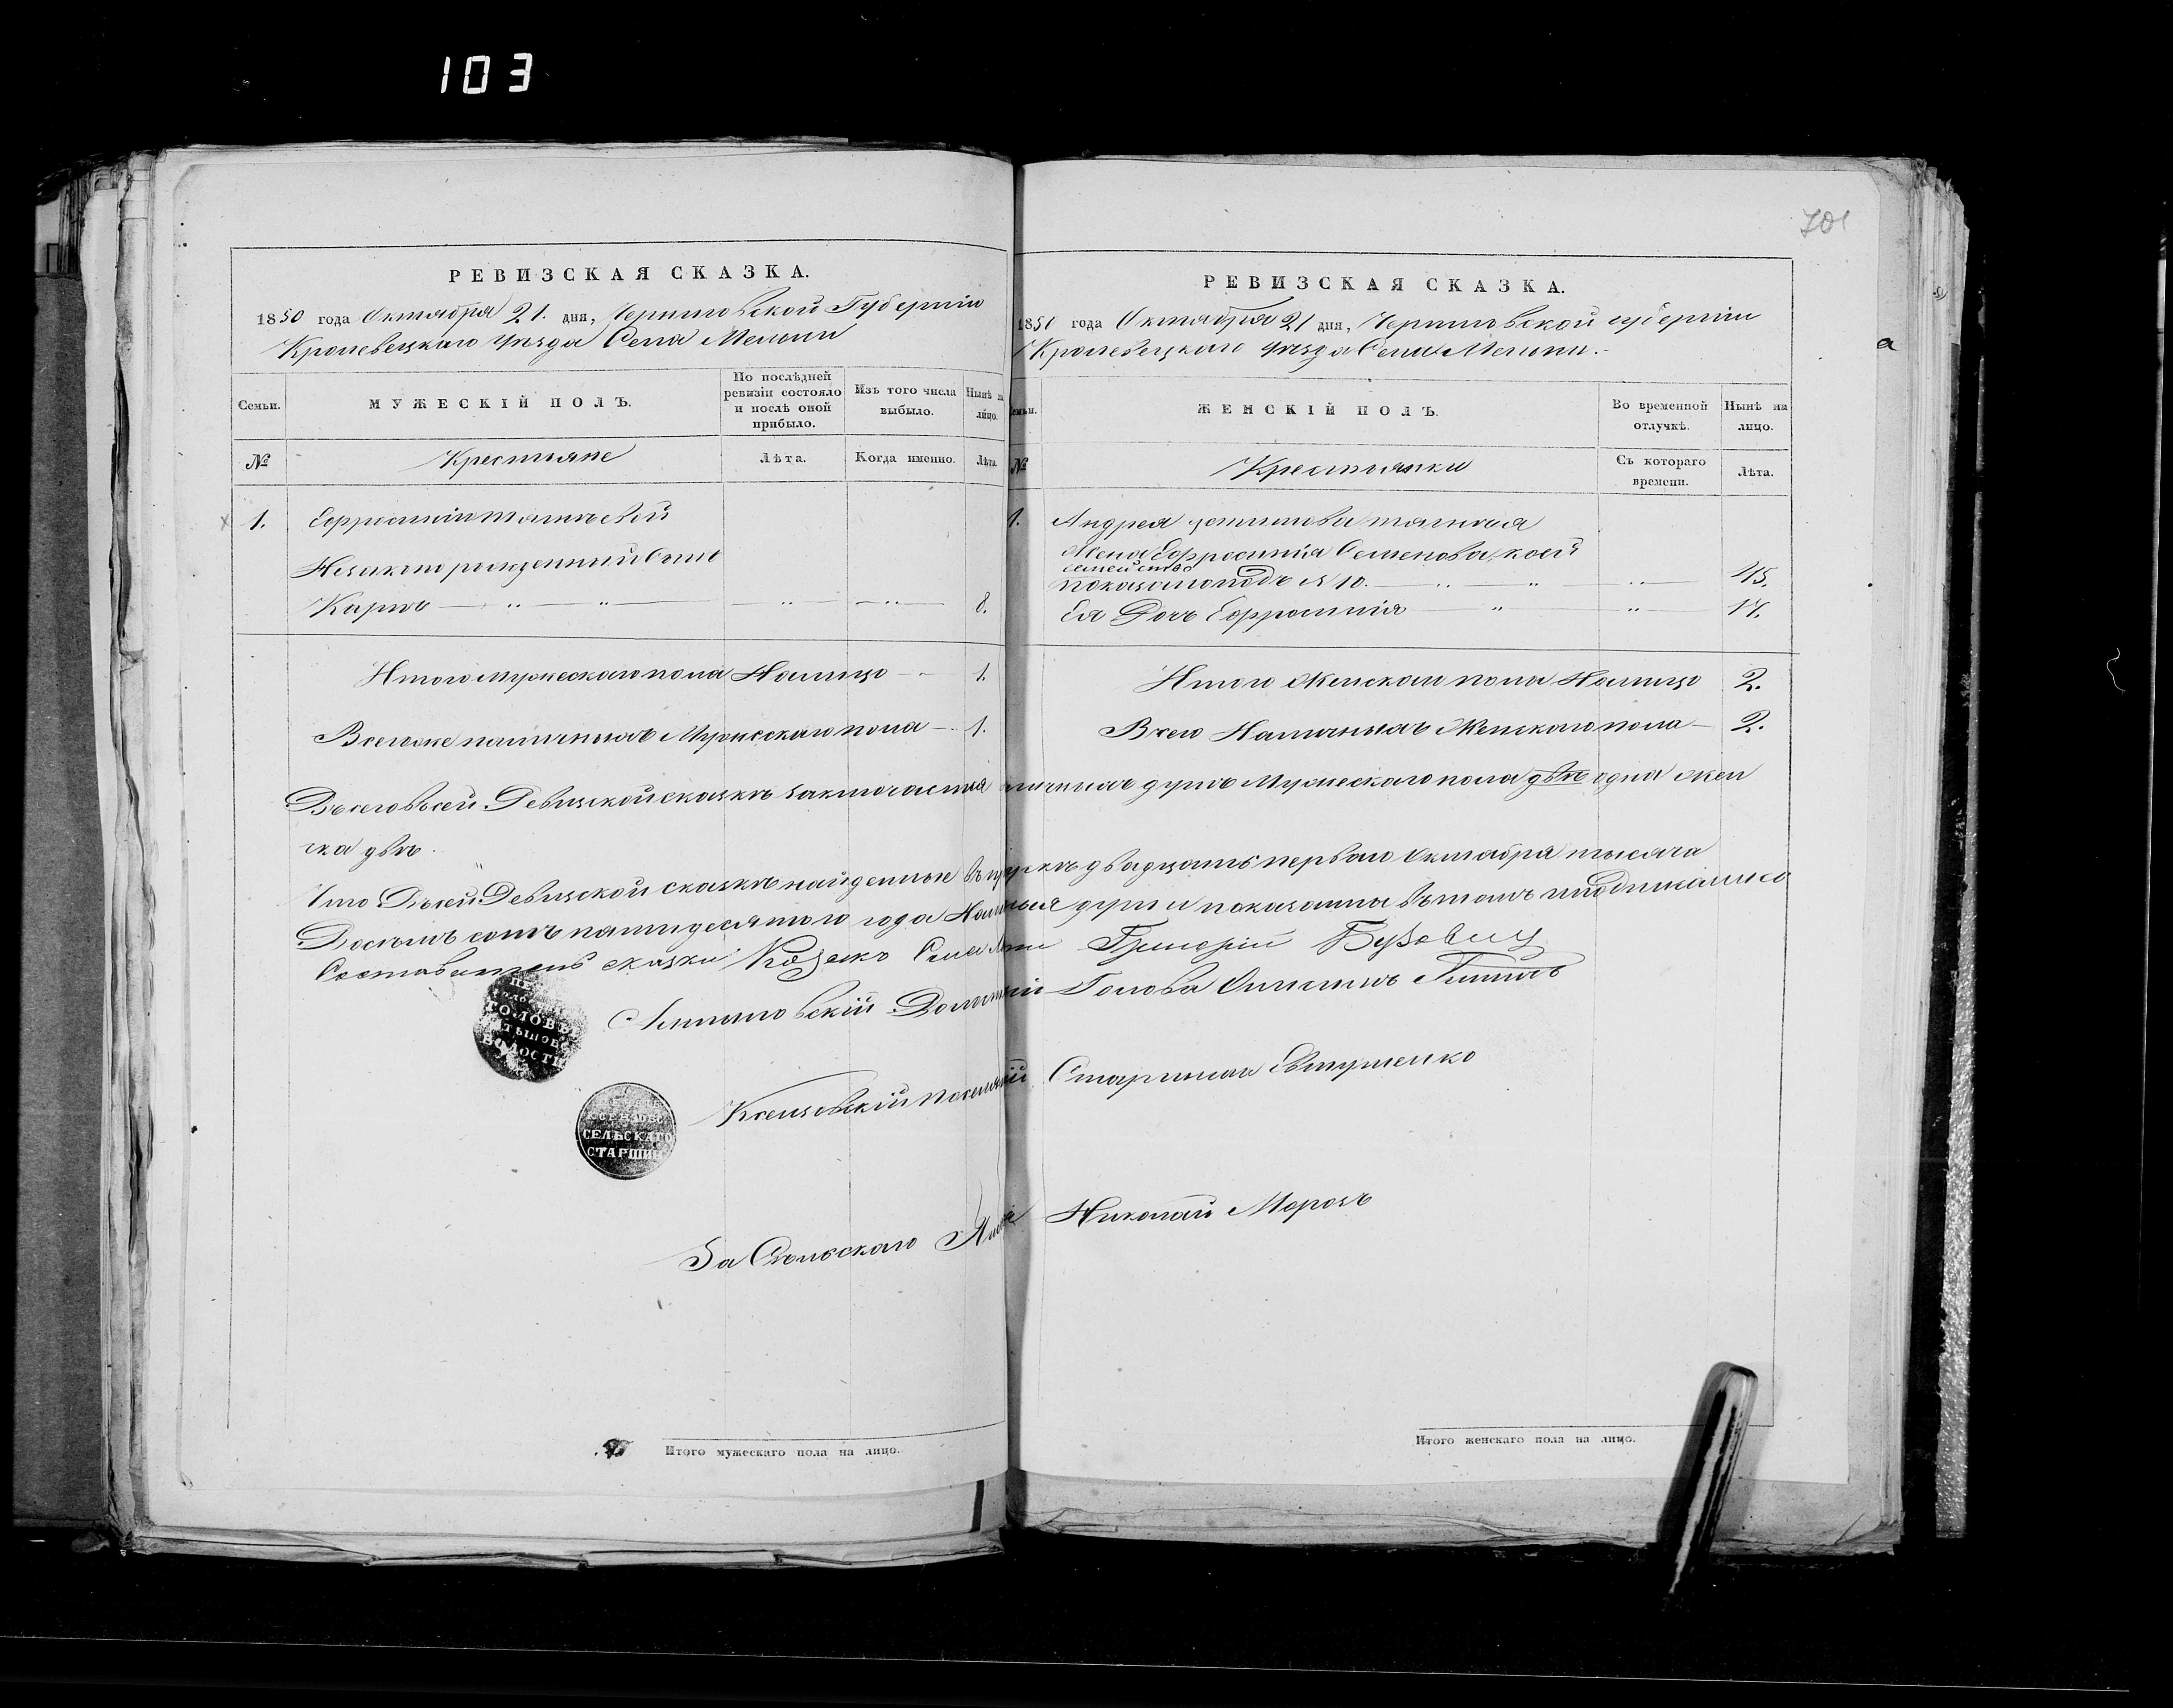 103
701
а
РЕВИЗСКАЯ СКАЗКА.
1850 года Октября 21. дня, Черниговской Губернии
Кролевецкаго Уѣзда Села Мельни
Семьи.
МУЖЕСКІЙ ПОЛЪ.
По послѣдней ревизіи состояло и послѣ оной прибыло.
Изъ того числа выбыло.
Нынѣ на лицо.
№
Крестьяне
Лѣта.
Когда именно.
Лѣта.
1. Ефросиніи
Незаконно рожденный Сынъ
Карпъ 8.
Итого мужескаго пола Налицо 1.
Всегоже наличныхъ Мужескаго пола 1.
РЕВИЗСКАЯ СКАЗКА.
1850 года Октября 21 дня, Черниговской губерніи
Кролевецкаго Уѣзда Села Мельни.
Семьи.
ЖЕНСКІЙ ПОЛЪ.
Во временной отлучкѣ.
Нынѣ на лицо.
№
Крестьянки
Съ котораго времени.
Лѣта.
1. Андрея
Жена Ефросинія Семенова, коей
семейство
показано подъ № 10. 45.
Ея Дочь Ефросинія 17.
Итого Женскаго пола Налицо 2.
Всего Наличныхъ Женскаго пола 2.
Всего въ сей Ревизской сказкѣ заключается наличныхъ душъ Мужескаго пола двѣ одна жен
ска двѣ.
Что въ сей Ревизской сказкѣ найденные двадцать перваго Октября тысяча
Восемь сотъ пятидесятаго года Наличныя души показанны въ томъ подписались
Составитель сказки Козакъ Села Григорій
Волостный Голова
ГОЛОВЫ
ВОЛОСТИ
Старшина Евтушенко
СЕЛЬСКАГО
СТАРШИНЫ
За Сельскаго Николай Морозъ
Итого мужескаго пола на лицо.
Итого женскаго пола на лицо.